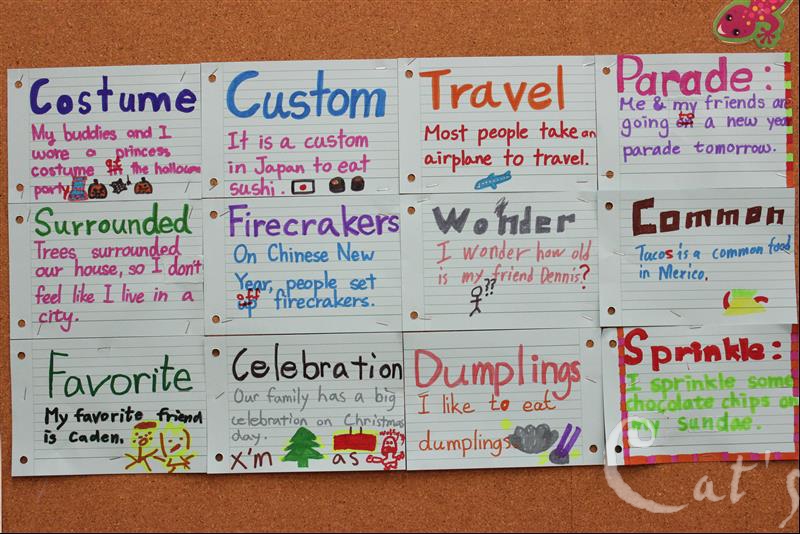 Costume
My buddies and I
wore a princess
costume at the hallowen
party
Custom
It is a custom
in Japan to eat
sushi.
Travel
Most people take an
airplane to travel.
Parade:
Me & my friends are
going to a new year
parade tomorrow.
Surrounded
Trees surrounded
our house, so I don't
feel like I live in a
city.
Firecrakers
On Chinese New
Year, people set
off firecrakers.
Wonder
I wonder how old
is my friend Dennis?
??
Common
Tacos is a common food
in Merico.
Favorite
My favorite friend
is Caden.
Celebration
Our family has a big
celebration on Christmas
day.
x'm as
Dumplings
I like to eat
dumplings
Sprinkle:
I sprinkle some
chocolate chips on
my sundae.
Cat's